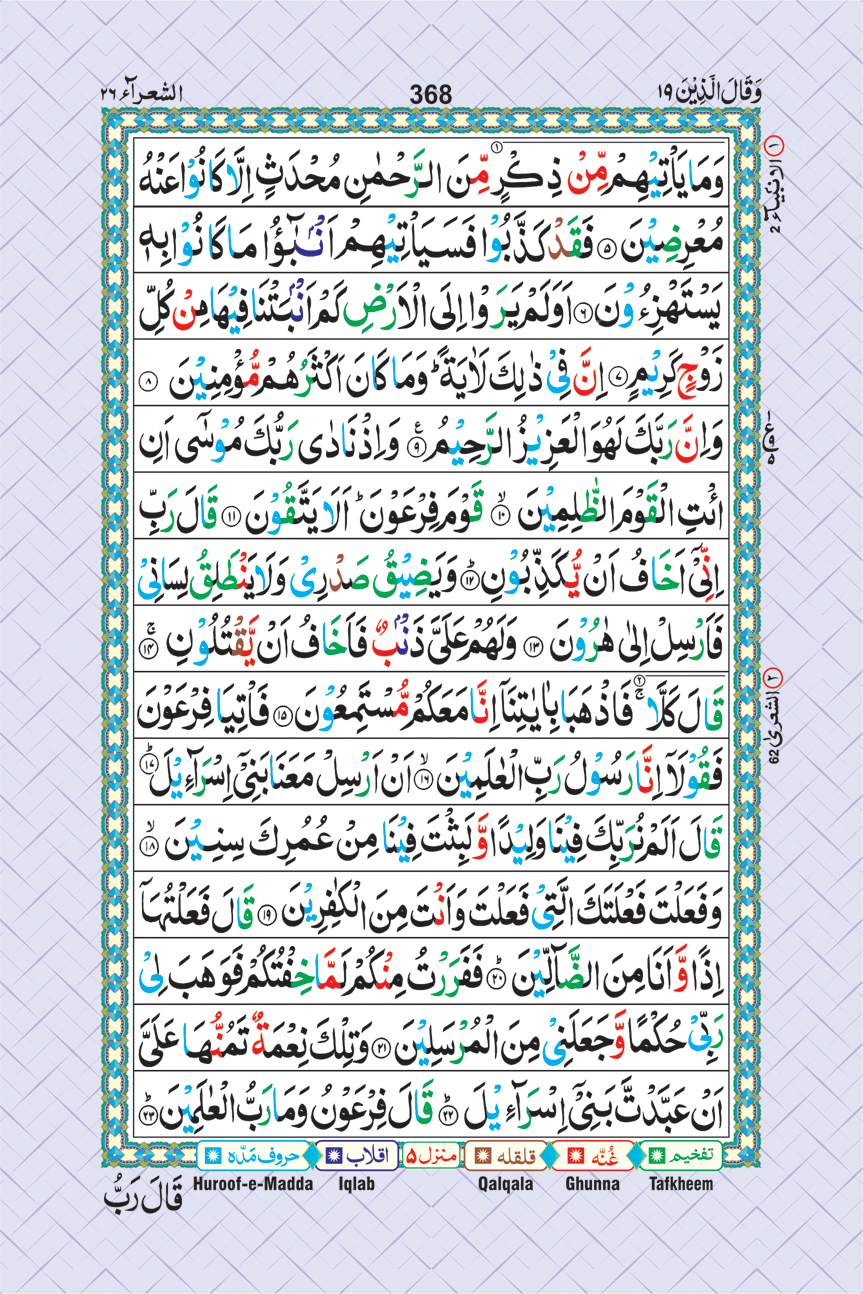 وَقَالَ الَّذِيْنَ ١٩ 368 الشعرآء ٢٦
وَمَا يَاْتِيْهِمْ مِّنْ ذِكْرٍ مِّنَ الرَّحْمٰنِ مُحْدَثٍ اِلَّا كَانُوْا عَنْهُ
مُعْرِضِيْنَ ۝٥ فَقَدْ كَذَّبُوْا فَسَيَاْتِيْهِمْ اَنْۢبٰٓؤُا مَا كَانُوْا بِهٖ
يَسْتَهْزِءُوْنَ ۝٦ اَوَلَمْ يَرَوْا اِلَى الْاَرْضِ كَمْ اَنْۢبَتْنَا فِيْهَا مِنْ كُلِّ
زَوْجٍ كَرِيْمٍ ۝٧ اِنَّ فِيْ ذٰلِكَ لَاٰيَةً ؕ وَمَا كَانَ اَكْثَرُهُمْ مُّؤْمِنِيْنَ ۝٨
وَاِنَّ رَبَّكَ لَهُوَ الْعَزِيْزُ الرَّحِيْمُ ۝٩ وَاِذْ نَادٰى رَبُّكَ مُوْسٰٓى اَنِ
ائْتِ الْقَوْمَ الظّٰلِمِيْنَ ۝١٠ قَوْمَ فِرْعَوْنَ ؕ اَلَا يَتَّقُوْنَ ۝١١ قَالَ رَبِّ
اِنِّيْٓ اَخَافُ اَنْ يُّكَذِّبُوْنِ ۝١٢ وَيَضِيْقُ صَدْرِيْ وَلَا يَنْطَلِقُ لِسَانِيْ
فَاَرْسِلْ اِلٰى هٰرُوْنَ ۝١٣ وَلَهُمْ عَلَيَّ ذَنْۢبٌ فَاَخَافُ اَنْ يَّقْتُلُوْنِ ۝١٤
قَالَ كَلَّا ۚ فَاذْهَبَا بِاٰيٰتِنَآ اِنَّا مَعَكُمْ مُّسْتَمِعُوْنَ ۝١٥ فَاْتِيَا فِرْعَوْنَ
فَقُوْلَآ اِنَّا رَسُوْلُ رَبِّ الْعٰلَمِيْنَ ۝١٦ اَنْ اَرْسِلْ مَعَنَا بَنِيْٓ اِسْرَآءِيْلَ ۝١٧
قَالَ اَلَمْ نُرَبِّكَ فِيْنَا وَلِيْدًا وَّلَبِثْتَ فِيْنَا مِنْ عُمُرِكَ سِنِيْنَ ۝١٨
وَفَعَلْتَ فَعْلَتَكَ الَّتِيْ فَعَلْتَ وَاَنْتَ مِنَ الْكٰفِرِيْنَ ۝١٩ قَالَ فَعَلْتُهَآ
اِذًا وَّاَنَا مِنَ الضَّآلِّيْنَ ۝٢٠ فَفَرَرْتُ مِنْكُمْ لَمَّا خِفْتُكُمْ فَوَهَبَ لِيْ
رَبِّيْ حُكْمًا وَّجَعَلَنِيْ مِنَ الْمُرْسَلِيْنَ ۝٢١ وَتِلْكَ نِعْمَةٌ تَمُنُّهَا عَلَيَّ
اَنْ عَبَّدْتَّ بَنِيْٓ اِسْرَآءِيْلَ ۝٢٢ قَالَ فِرْعَوْنُ وَمَا رَبُّ الْعٰلَمِيْنَ ۝٢٣
١ الانبيآء 2
٢ الشعرىٰ 62
تفخيم غُنّه قلقله منزل ٥ اقلاب حروف مَدّه
Huroof-e-Madda Iqlab Qalqala Ghunna Tafkheem
قَالَ رَبُّ